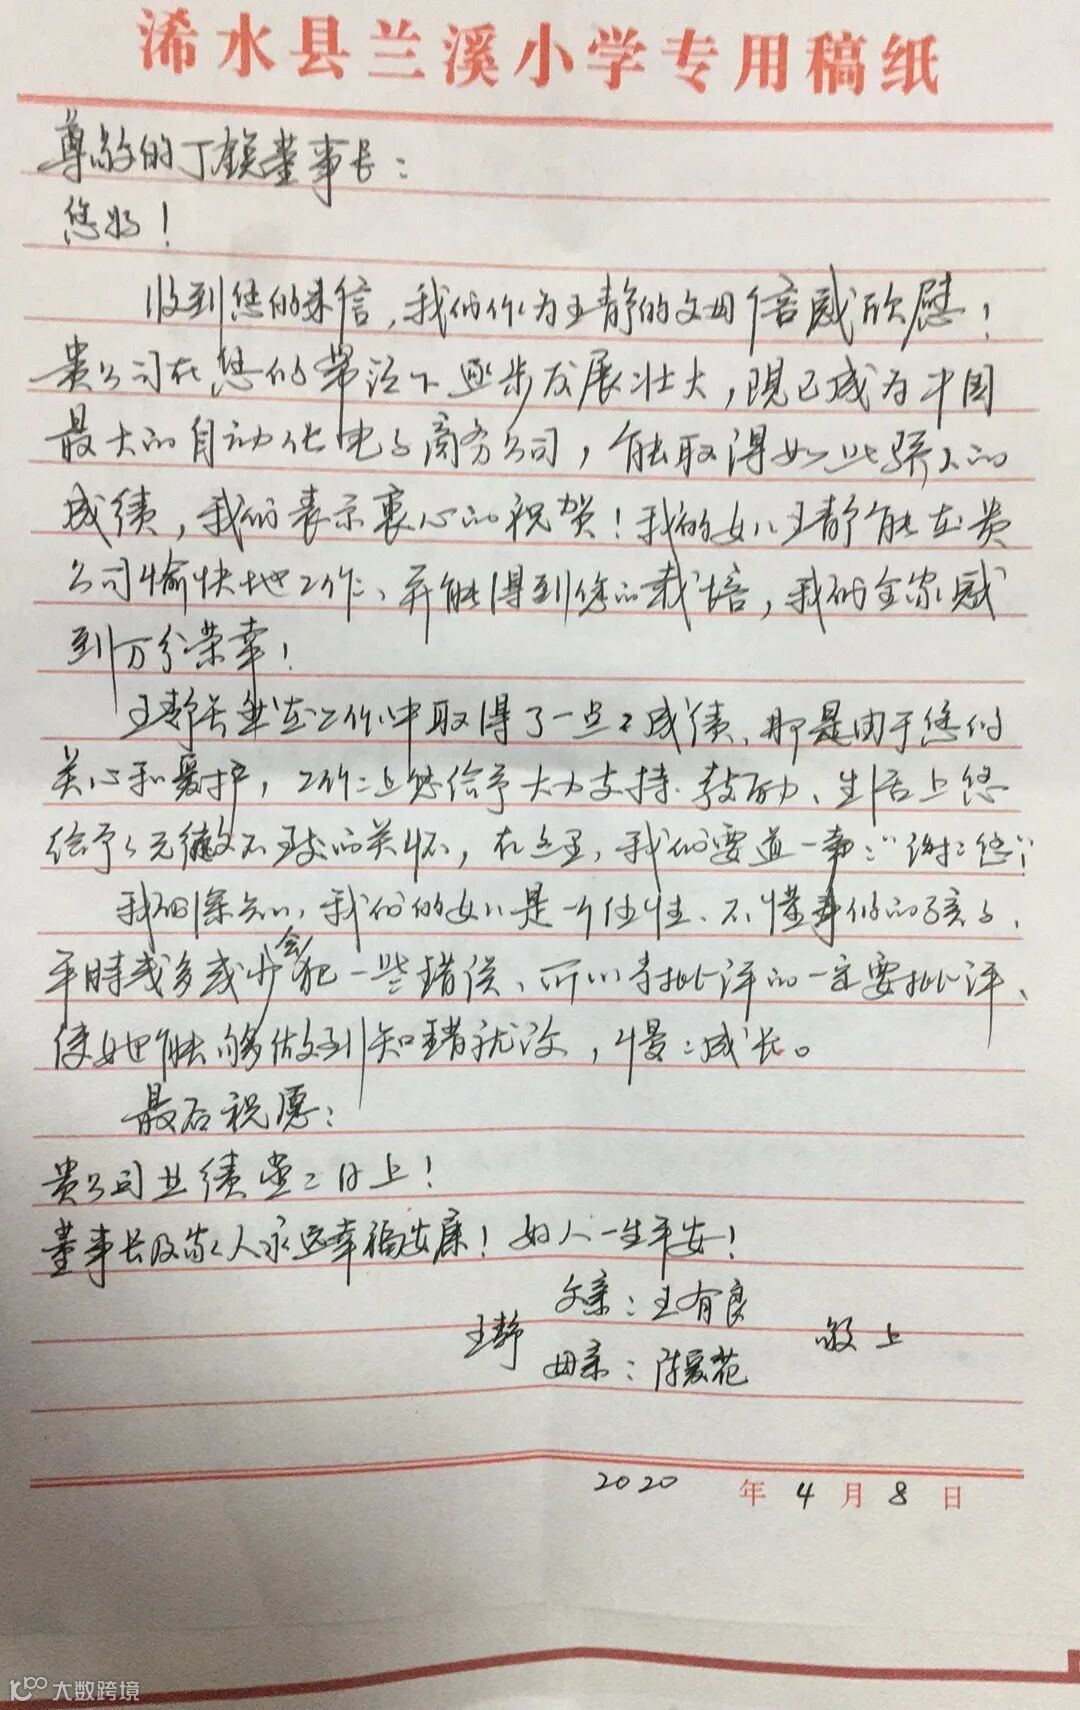 浠水县兰溪小学专用稿纸
尊敬的丁董事长：
您好！
收到您的来信，我们作为王静的父母倍感欣慰！
贵公司在您的带领下逐步发展壮大，现已成为中国
最大的自动化电子商务公司，能取得如此骄人的
成绩，我们表示衷心的祝贺！我的女儿王静能在贵
公司愉快地工作、并能得到您的栽培，我们全家感
到万分荣幸！
王静虽然在工作中取得了一点点成绩、那是由于您的
关心和爱护，工作上您给予大力支持、鼓励、生活上您
给予了无微不至的关怀，在这里，我们要道一声："谢谢您"！
我们深知，我们的女儿是一个任性、不懂事的孩子、
平时或多或少会犯一些错误、所以该批评的一定要批评、
使她能够做到知错就改，慢慢成长。
最后祝愿：
贵公司业绩蒸蒸日上！
董事长及家人永远幸福安康！好人一生平安！
王静
父亲：王有良
母亲：陈爱花
敬上
2020年4月8日
大数跨境